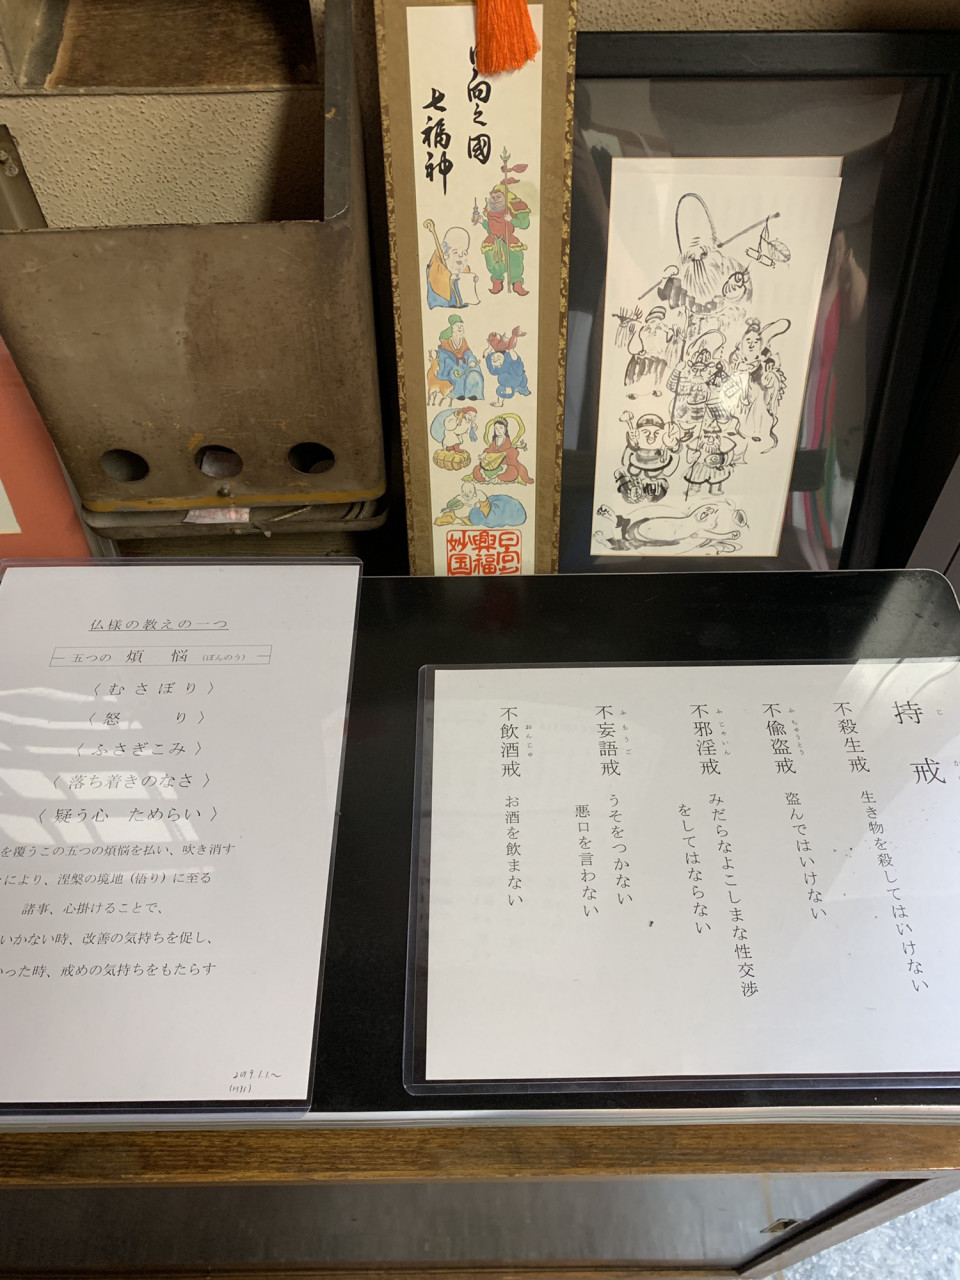 日向之國
七福神
日向
興福
妙国
仏様の教えの一つ
五つの 煩 悩 (ぼんのう)
〈 む さ ぼ り 〉
〈 怒 り 〉
〈 ふさぎこみ 〉
〈 落ち着きのなさ 〉
〈 疑う心 ためらい 〉
を覆うこの五つの煩悩を払い、吹き消す
により、涅槃の境地（悟り）に至る
諸事、心掛けることで、
いかない時、改善の気持ちを促し、
いった時、戒めの気持ちをもたらす
2019 1.1〜
持 戒
じ
か
不殺生戒 生き物を殺してはいけない
不偸盗戒 盗んではいけない
ふちゅうとう
不邪淫戒 みだらなよこしまな性交渉
ふじゃいん
をしてはならない
不妄語戒 うそをつかない
ふもうご
悪口を言わない
不飲酒戒 お酒を飲まない
おんじゅ